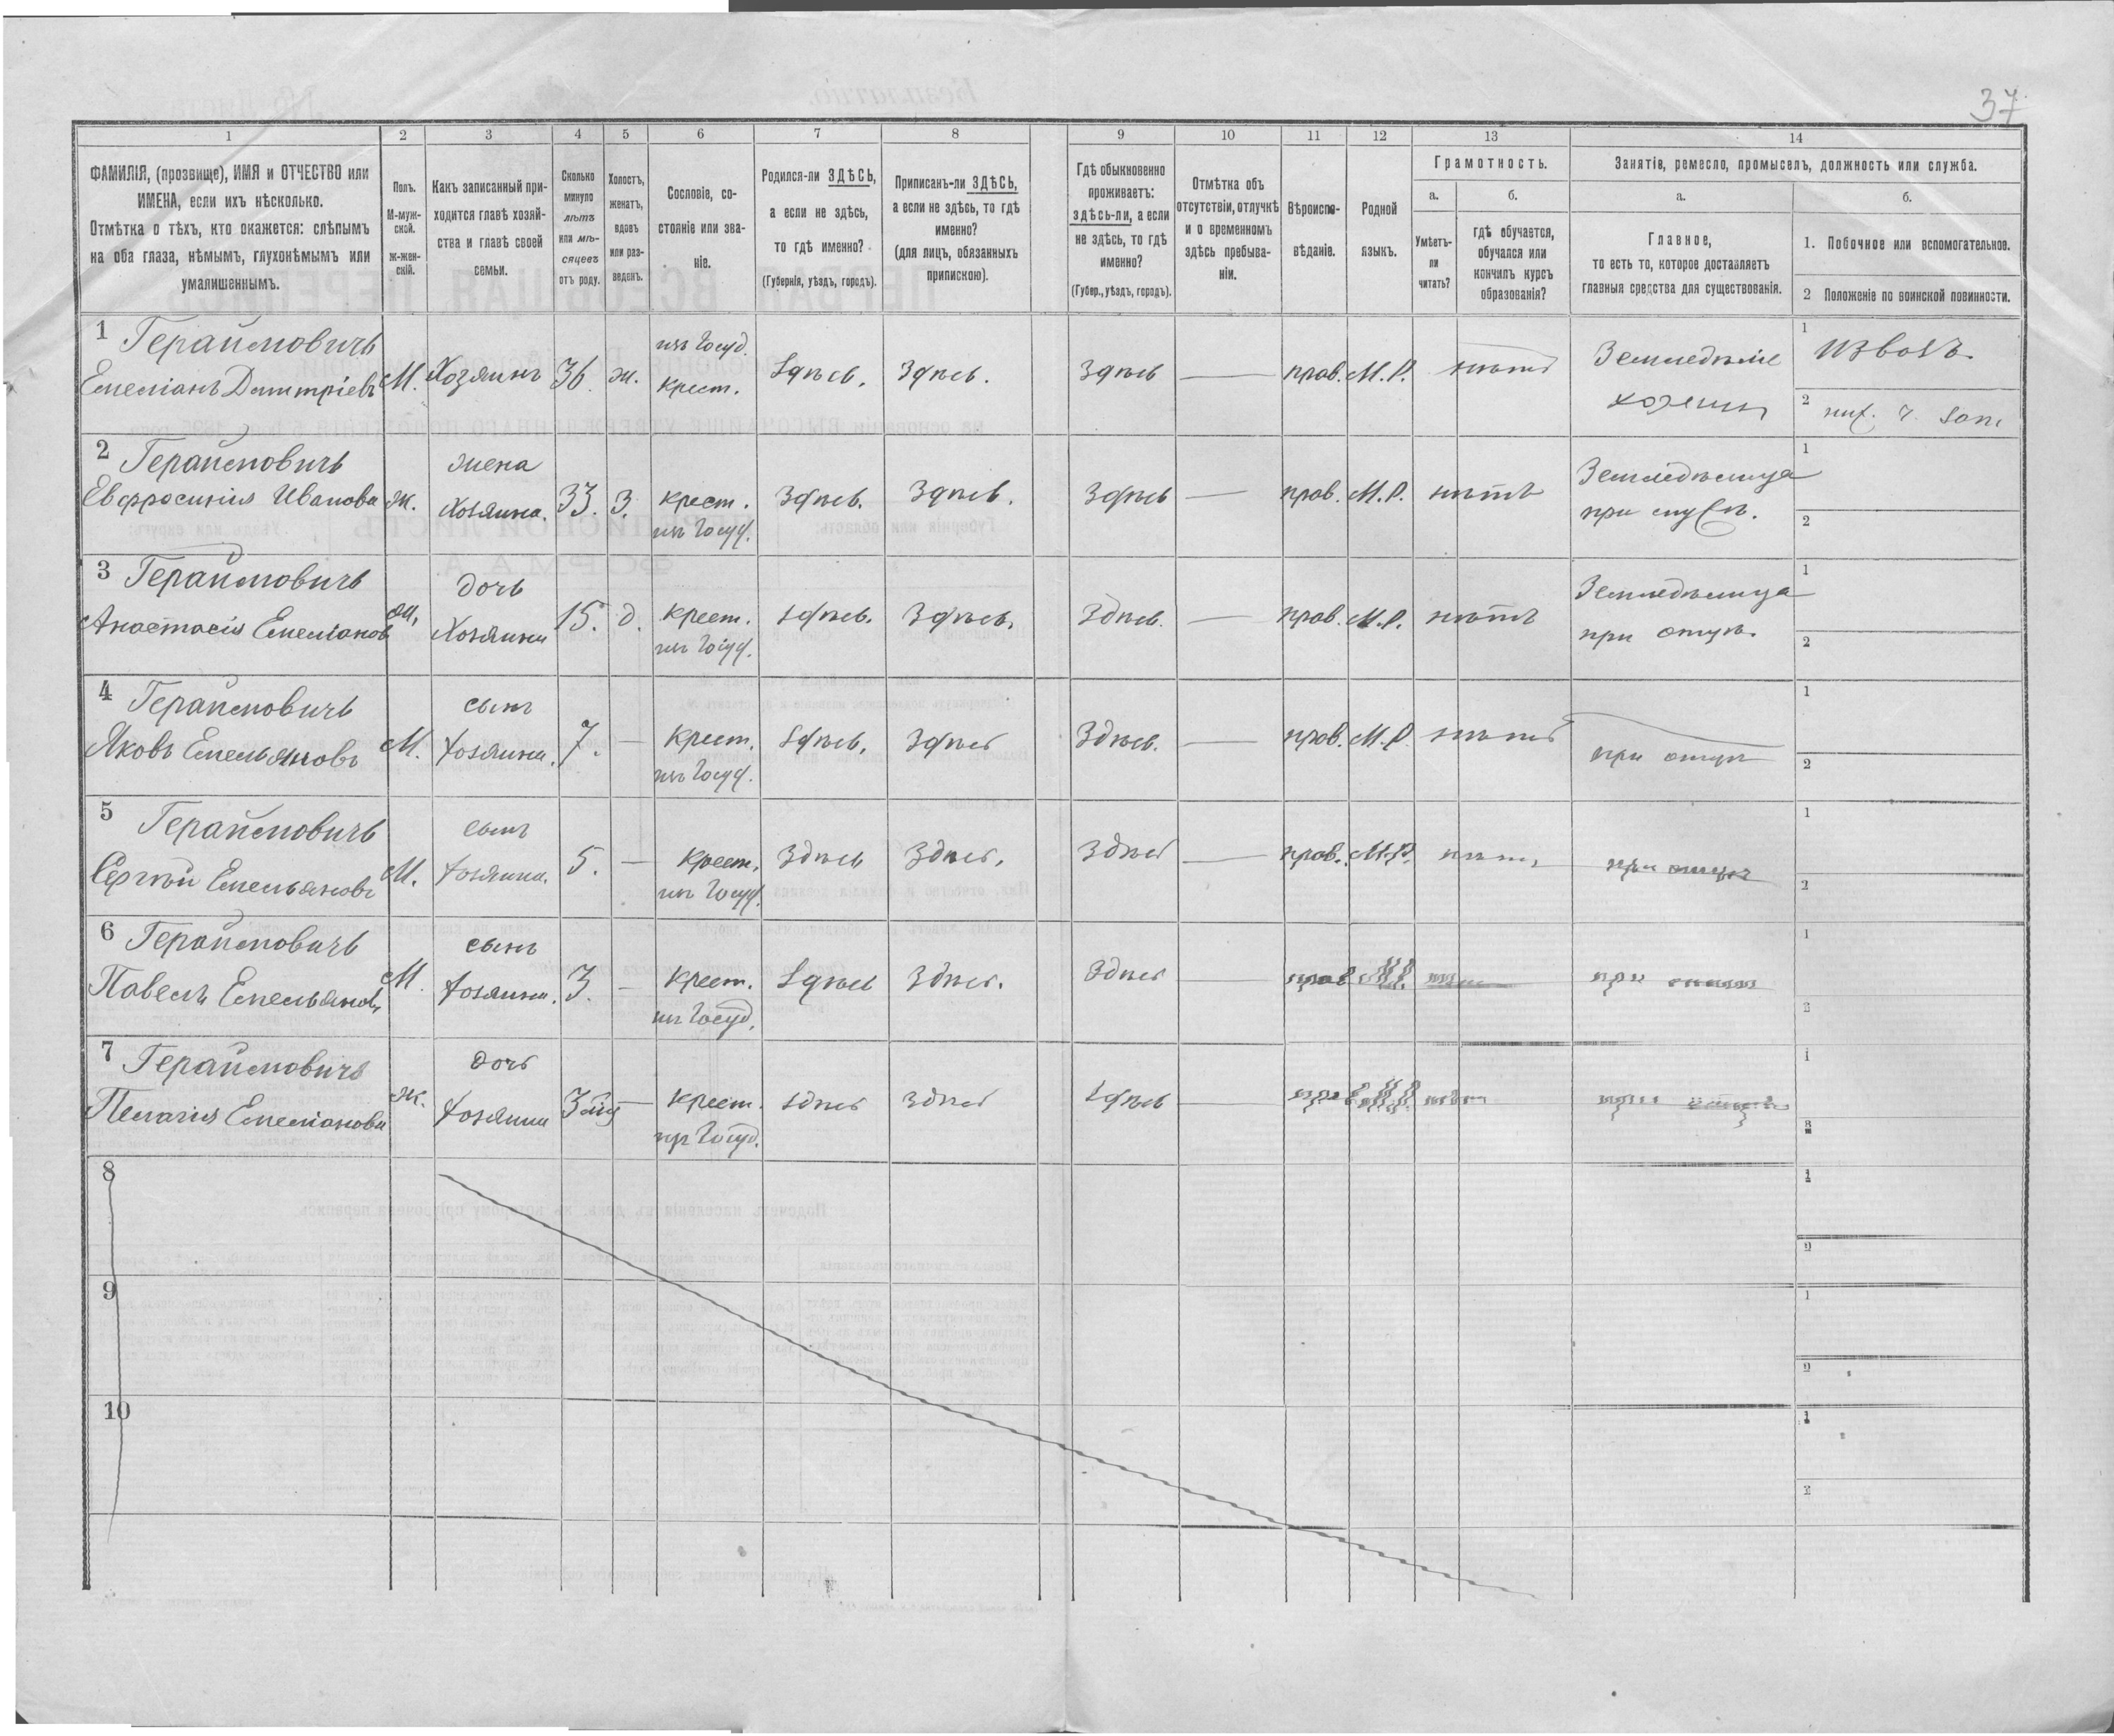 37
1 2 3 4 5 6 7 8 9 10 11 12 13 14
ФАМИЛІЯ, (прозвище), ИМЯ и ОТЧЕСТВО или
ИМЕНА, если ихъ нѣсколько.
Отмѣтка о тѣхъ, кто окажется: слѣпымъ
на оба глаза, нѣмымъ, глухонѣмымъ или
умалишеннымъ.
Полъ.
М-муж-
ской.
ж-жен-
скій.
Какъ записанный при-
ходится главѣ хозяй-
ства и главѣ своей
семьи.
Сколько
минуло
лѣтъ
или мѣ-
сяцевъ
отъ роду.
Холостъ,
женатъ,
вдовъ
или раз-
веденъ.
Сословіе, со-
стояніе или зва-
ніе.
Родился-ли ЗДѢСЬ,
а если не здѣсь,
то гдѣ именно?
(Губернія, уѣздъ, городъ).
Приписанъ-ли ЗДѢСЬ,
а если не здѣсь, то гдѣ
именно?
(для лицъ, обязанныхъ
припискою).
Гдѣ обыкновенно
проживаетъ:
здѣсь-ли, а если
не здѣсь, то гдѣ
именно?
(Губер., уѣздъ, городъ).
Отмѣтка объ
отсутствіи, отлучкѣ
и о временномъ
здѣсь пребыва-
ніи.
Вѣроиспо-
вѣданіе.
Родной
языкъ.
Грамотность.
а.
Умѣетъ-
ли
читать?
б.
гдѣ обучается,
обучался или
кончилъ курсъ
образованія?
Занятіе, ремесло, промыселъ, должность или служба.
а.
Главное,
то есть то, которое доставляетъ
главныя средства для существованія.
б.
1. Побочное или вспомогательное.
2 Положеніе по воинской повинности.
1 Герайловичъ
Емеліанъ Димитріевъ М. Хозяинъ 36 ж. изъ Госуд. крест. Здѣсь. Здѣсь. Здѣсь — прав. М.Р. нѣтъ Земледѣліе
хозяинъ
1 Извозъ.
2
2 Герайловичъ
Евфросинія Иванова ж. жена хозяина. 33. З. крест. изъ Госуд. Здѣсь. Здѣсь. Здѣсь — прав. М.Р. нѣтъ Земледѣлица
при мужѣ.
1
2
3 Герайловичъ
Анастасія Емеліанов ж. дочь хозяина 15. д. крест. изъ Госуд. Здѣсь. Здѣсь. Здѣсь. — прав. М.Р. нѣтъ Земледѣлица
при отцѣ.
1
2
4 Герайловичъ
Яковъ Емельяновъ М. сынъ хозяина. 7. — крест. изъ Госуд. Здѣсь. Здѣсь Здѣсь. — прав. М.Р. нѣтъ при отцѣ
1
2
5 Герайловичъ
Сергѣй Емельяновъ М. сынъ хозяина. 5. — крест. изъ Госуд. Здѣсь Здѣсь. Здѣсь — прав. М.Р. нѣтъ при отцѣ
1
2
6 Герайловичъ
Павелъ Емельяновъ М. сынъ хозяина. 3. — крест. изъ Госуд. Здѣсь Здѣсь. Здѣсь — прав М.Р. при
1
7 Герайловичъ
Пелагія Емеліанова ж. дочь хозяина 3 — крест. изъ Госуд. Здѣсь Здѣсь Здѣсь — М.Р. при
1
8
9
10